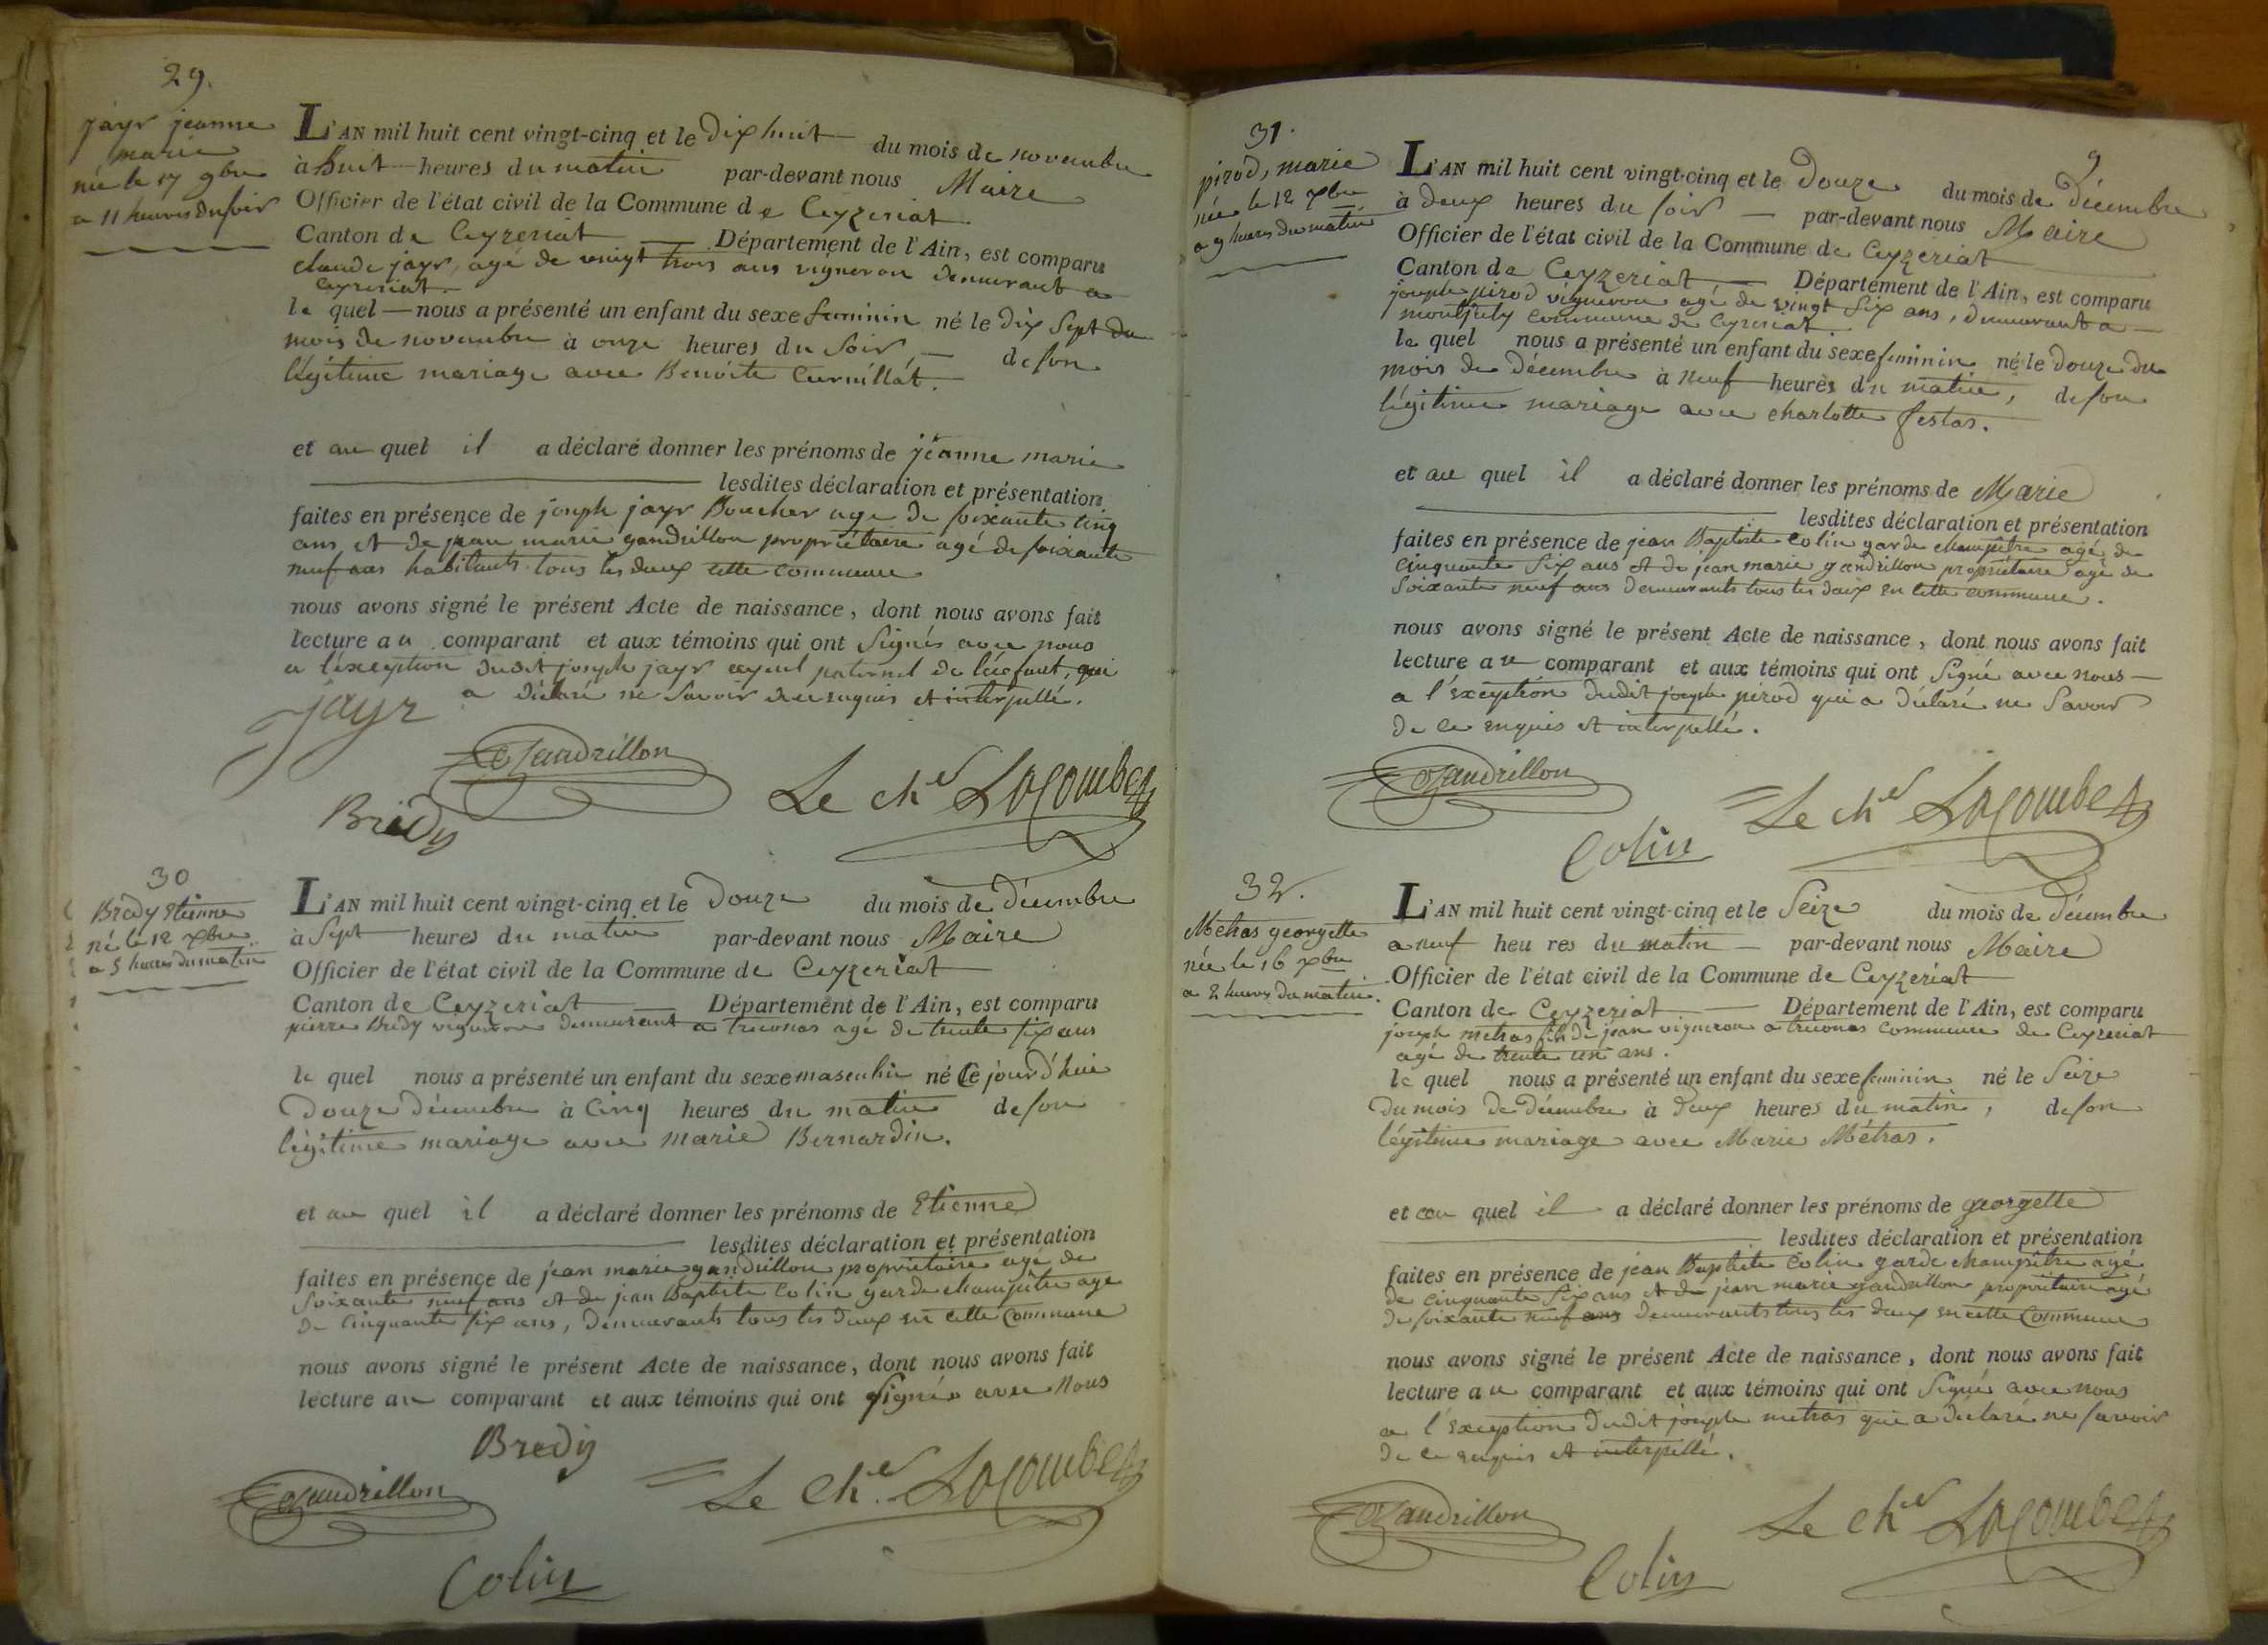 29.
jayr jeanne
marie
née le 17 9bre
a 11 heures du soir
L'AN mil huit cent vingt-cinq et le dix huit du mois de novembre
à huit heures du matin par-devant nous Maire
Officier de l'état civil de la Commune de Ceyzeriat
Canton de Ceyzeriat Département de l'Ain, est comparu
claude jayr, agé de vingt trois ans vigneron demeurant a
Ceyzeriat.
le quel nous a présenté un enfant du sexe feminin né le dix sept du
mois de novembre à onze heures du soir, de son
légitime mariage avec Benoite Curnillat.
et au quel il a déclaré donner les prénoms de jeanne marie
lesdites déclaration et présentation
faites en présence de joseph jayr Boucher age de soixante cinq
ans et de jean marie gandrillon propriétaire agé de soixante
neuf ans habitants tous les deux cette commune
nous avons signé le présent Acte de naissance, dont nous avons fait
lecture au comparant et aux témoins qui ont signés avec nous
a l'éxception dudit joseph jayr ayeul paternel de l'enfant, qui
a déclaré ne savoir de ce enquis et interpellé.
jayr
Gandrillon
Le che Lacombe
Bredy
30
Brédy Etienne
né le 12 xbre
a 5 heures du matin
L'AN mil huit cent vingt-cinq et le douze du mois de décembre
à sept heures du matin par-devant nous Maire
Officier de l'état civil de la Commune de Ceyzeriat
Canton de Ceyzeriat Département de l'Ain, est comparu
pierre Brédy vigneron demeurant a treconas agé de trente six ans
le quel nous a présenté un enfant du sexe masculin né Ce jourd'hui
douze décembre à cinq heures du matin de son
légitime mariage avec marie Bernardin.
et au quel il a déclaré donner les prénoms de Etienne
lesdites déclaration et présentation
faites en présence de jean marie gandrillon propriétaire agé de
soixante neuf ans et de jean Baptiste Colin garde champêtre agé
de cinquante six ans, demeurants tous les deux en cette Commune
nous avons signé le présent Acte de naissance, dont nous avons fait
lecture au comparant et aux témoins qui ont signés avec nous
Bredy
Gandrillon
Le che. Lacombe
Colin
9
31.
pirod, marie
née le 12 xbre
a 9 heures du matin
L'AN mil huit cent vingt-cinq et le douze du mois de décembre
à deux heures du soir par-devant nous Maire
Officier de l'état civil de la Commune de Ceyzeriat
Canton de Ceyzeriat Département de l'Ain, est comparu
joseph pirod vigneron agé de vingt six ans, demeurant a
montjuly commune de Ceyzeriat.
le quel nous a présenté un enfant du sexe feminin né le douze du
mois de décembre à neuf heures du matin, de son
légitime mariage avec charlotte festas.
et au quel il a déclaré donner les prénoms de Marie
lesdites déclaration et présentation
faites en présence de jean Baptiste Colin garde champêtre agé de
cinquante six ans et de jean marie gandrillon propriétaire agé de
soixante neuf ans demeurants tous les deux en cette commune.
nous avons signé le présent Acte de naissance, dont nous avons fait
lecture au comparant et aux témoins qui ont signé avec nous
a l'éxception dudit joseph pirod qui a déclaré ne savoir
de ce enquis et interpellé.
Gandrillon
Le che Lacombe
Colin
32.
Métras georgette
née le 16 xbre
a 2 heures du matin.
L'AN mil huit cent vingt-cinq et le seize du mois de décembre
a neuf heures du matin par-devant nous Maire
Officier de l'état civil de la Commune de Ceyzeriat
Canton de Ceyzeriat Département de l'Ain, est comparu
joseph metras fils de jean vigneron a treconas commune de Ceyzeriat
agé de trente un ans.
le quel nous a présenté un enfant du sexe feminin né le seize
du mois de décembre à deux heures du matin, de son
légitime mariage avec Marie Métras.
et au quel il a déclaré donner les prénoms de georgette
lesdites déclaration et présentation
faites en présence de jean Baptiste Colin garde champêtre agé
de cinquante six ans et de jean marie gandrillon propriétaire agé
de soixante neuf ans demeurants tous les deux en cette Commune
nous avons signé le présent Acte de naissance, dont nous avons fait
lecture au comparant et aux témoins qui ont signé avec nous
a l'exception dudit joseph metras qui a déclaré ne savoir
de ce enquis et interpellé.
Gandrillon
Le che Lacombe
Colin